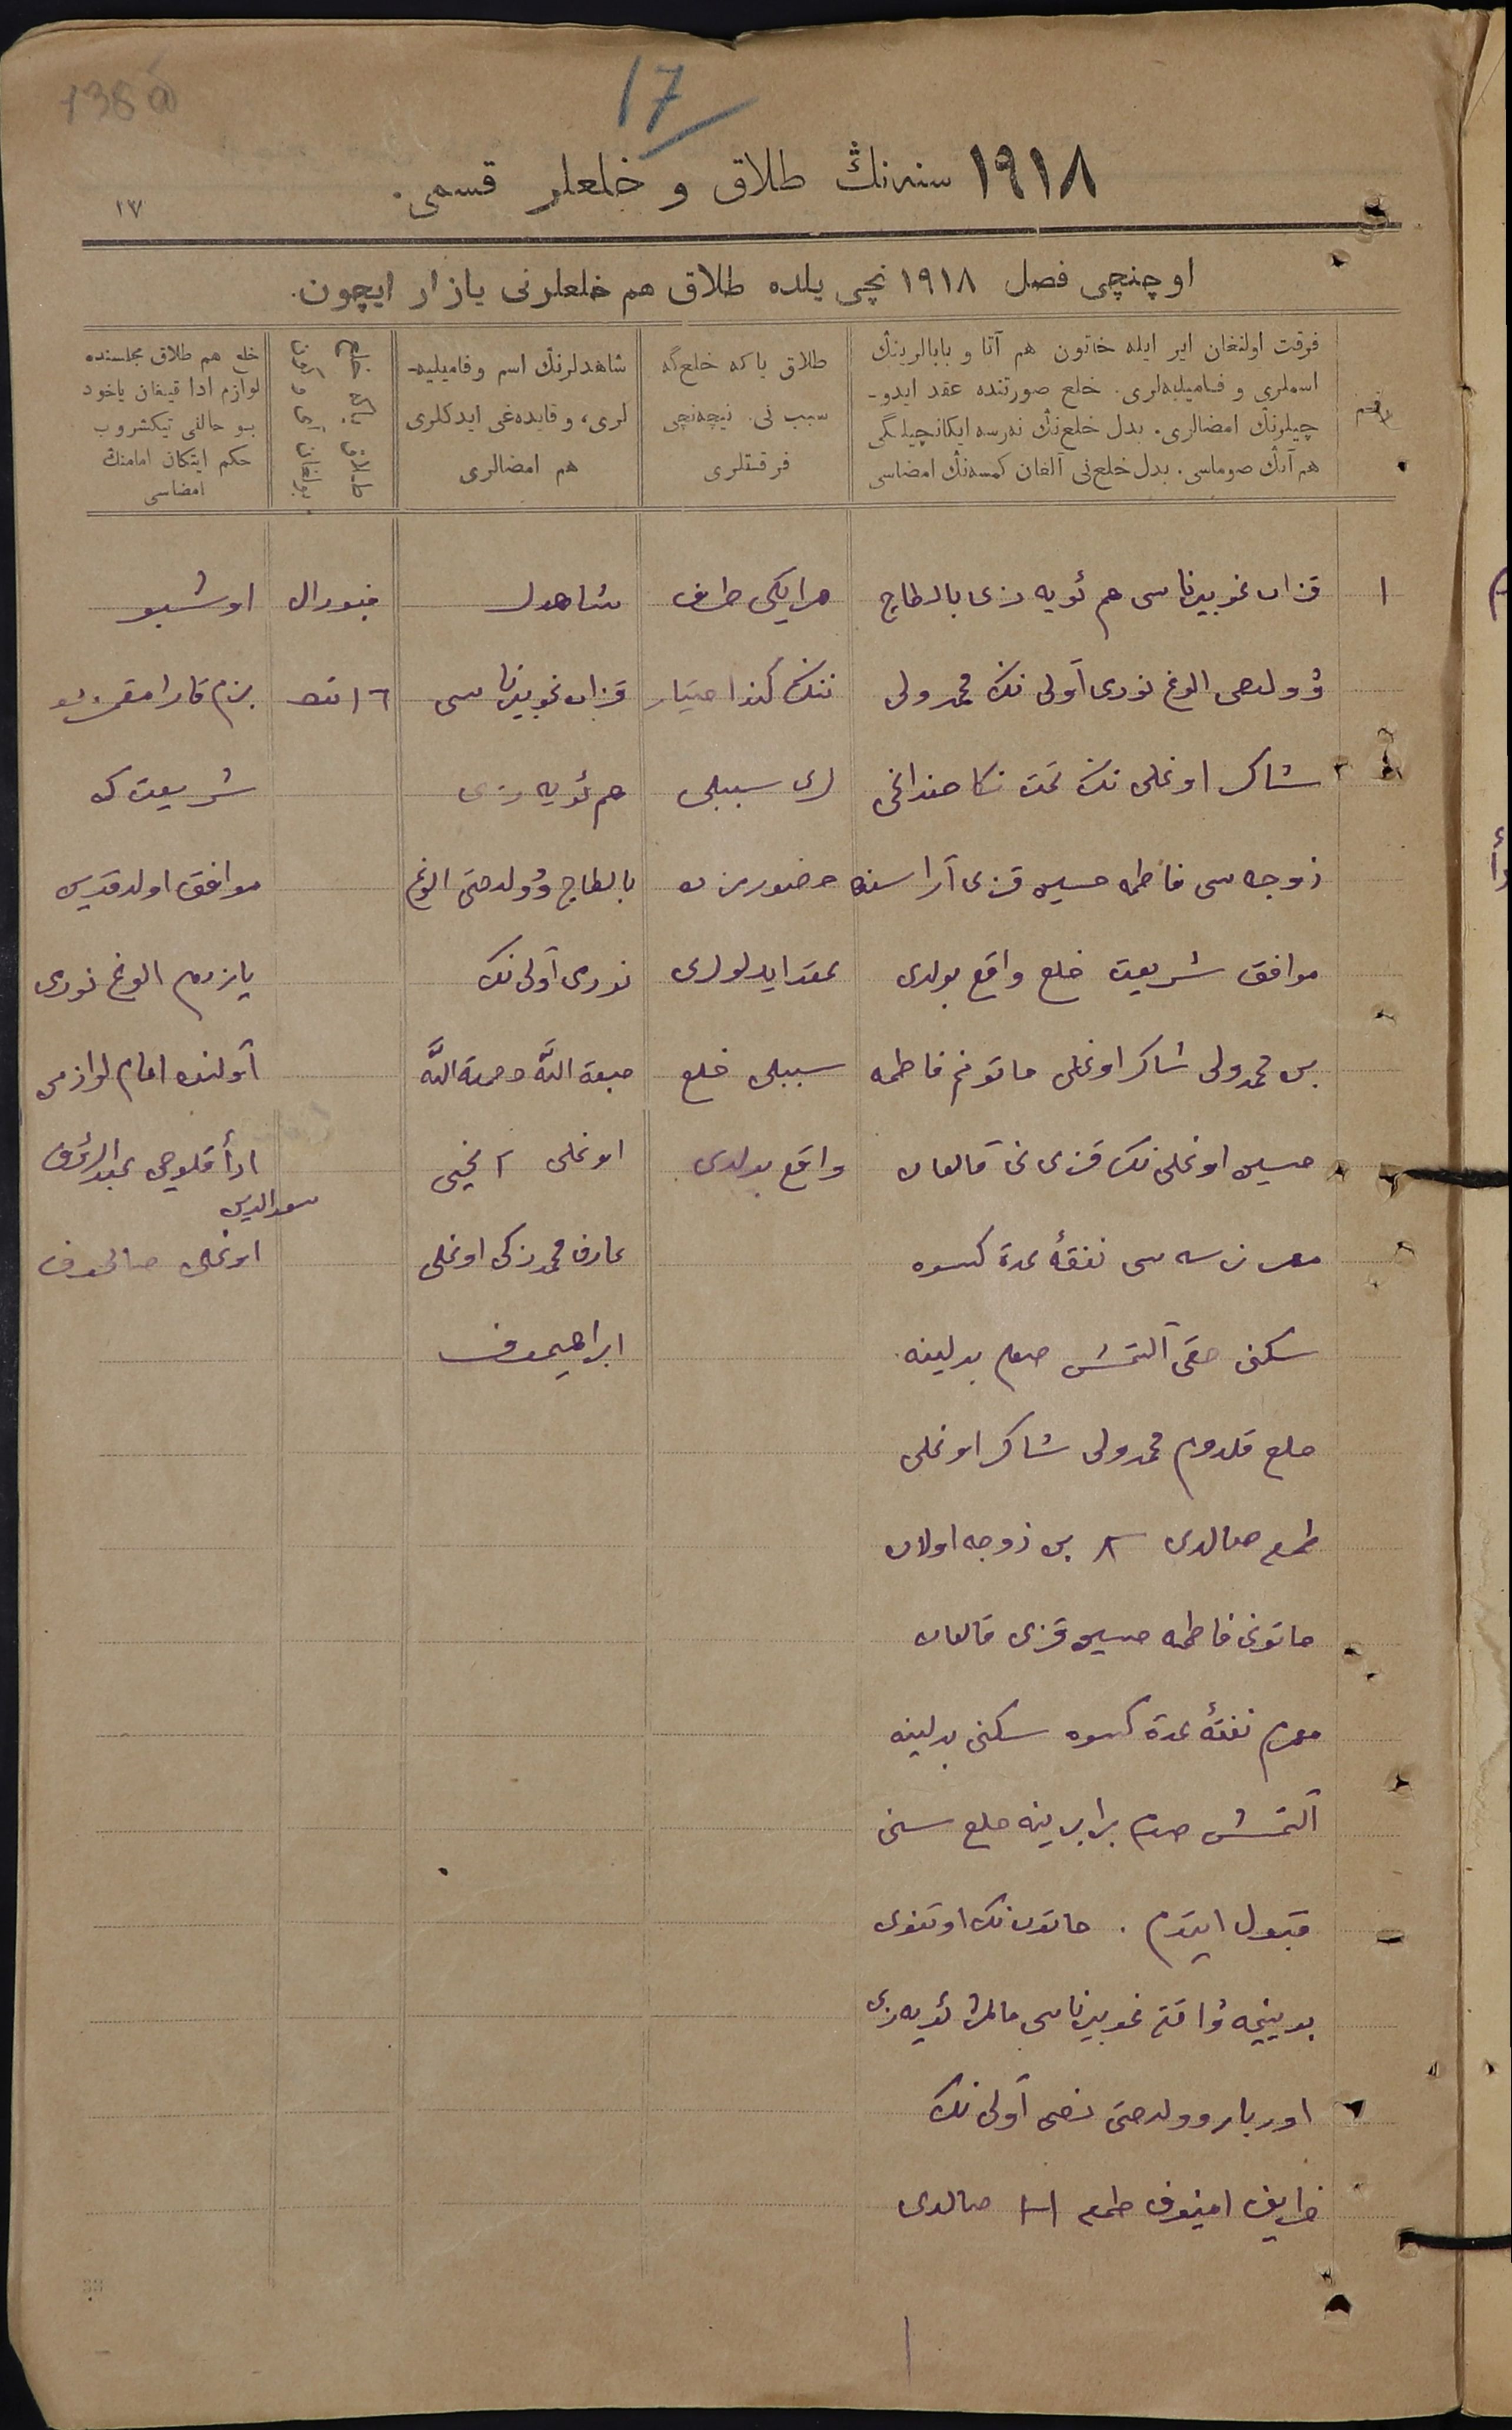 138 a
17
١٩١٨ سنه‌نڭ طلاق و خلعلر قسمی.
١٧
اوچنچی فصل ١٩١٨ نچی یلده طلاق هم خلعلرنی یازار ایچون.
رقم
فرقت اولنغان ایر ایله خاتون هم آتا و بابالرینڭ
اسملری و فامیلیه‌لری. خلع صورتنده عقد ایدو-
چیلرنڭ امضالری. بدل خلع‌نڭ نه‌رسه ایکانچیلگی
هم آنڭ صوماسی. بدل خلع‌نی آلغان کمسه‌نڭ امضاسی
طلاق یا که خلع‌گه
سبب نی. نیچه‌نچی
فرقتلری
شاهدلرنڭ اسم و فامیلیه-
لری، و قایده‌غی ایدکلری
هم امضالری
طلاق یا که خلع
بولغان آی و کون
خلع هم طلاق مجلسنده
لوازم ادا قیلغان یاخود
بو حالنی تیکشروب
حکم ایتکان امامنڭ
امضاسی
١
قزان غوبیرناسی هم ئویه زی بالطاج
وولصی الوغ نوری آولی ننک محمدولی
شاکر اوغلی ننک تحت نکاحنداغی
زوجه سی فاطمه حسین قزی آراسنده
موافق شریعت خلع واقع بولدی
بن محمدولی شاکر اوغلی خاتونم فاطمه
حسین اوغلی ننک قزی نی قالغان
مهر نرسه سی نفقهٔ عدة کسوه
سکنی حقی آلتمش صوم بدلینه
خلع قلدوم محمدولی شاکر اوغلی
طمغه صالدی بن زوجه اولان
خاتونی فاطمه حسین قزی قالغان
مهرم نفقهٔ عدة کسوه سکنی بدلینه
آلتمش صوم برابرینه خلع سنی
قبول ایتدم . خاتون ننک اوتنوی
بوینچه واتقه غوبیرناسی مالمش ئویه زی
اوربار وولصی نصی آولی ننک
ظریف امینوف طمغه صالدی
هر ایکی طرف
ننک کندا ختیار
لری سببلی
حضورمزده
عقد ایدلولری
سببلی خلع
واقع بولدی
شاهدلر
قزان غوبیرناسی
هم ئویه زی
بالطاج وولصی الوغ
نوری آولی ننک
صبغة الله رحمة الله
اوغلی ٢ نچی
عارف محمدزکی اوغلی
ابراهیموف
فیورال
١٦ نده
اوشبو
شریعت که
موافق اولدقدین
یازدم الوغ نوری
آولنده امام لوازمی
ادأ قلوچی عبدالرؤف
سعدالدین
اوغلی صالحوف